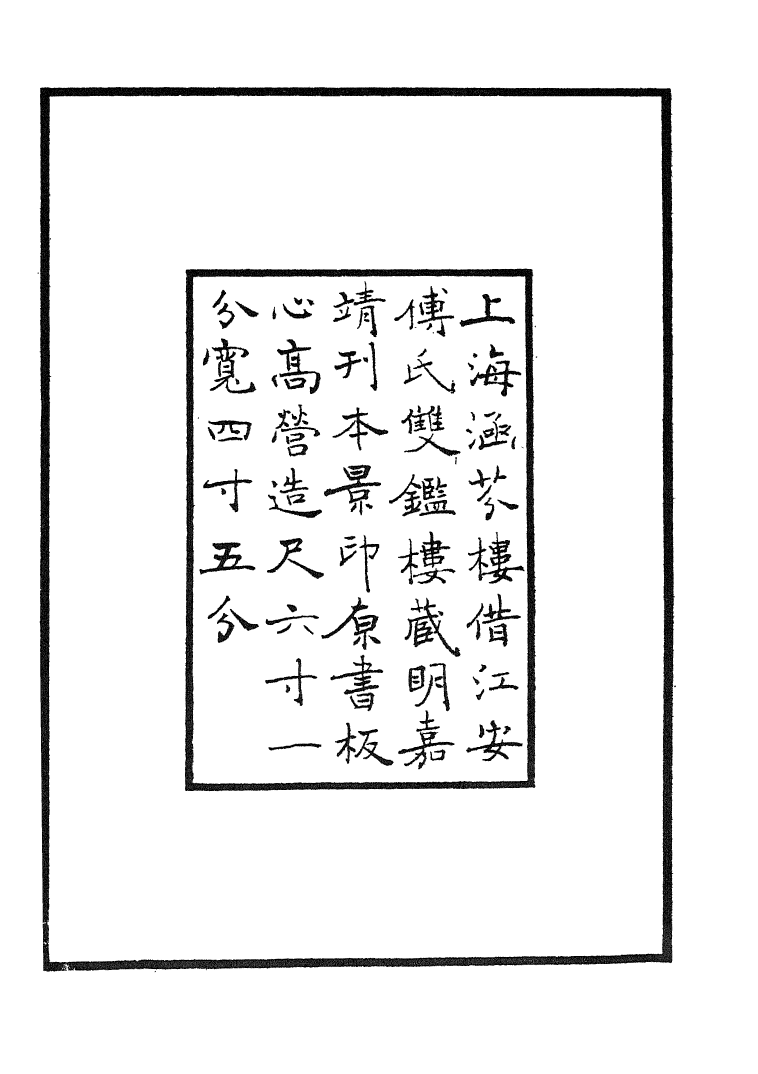 上海涵芬樓借江安
傅氏雙鑑樓藏明嘉
靖刊本景印原書板
心高營造尺六寸一
分寬四寸五分